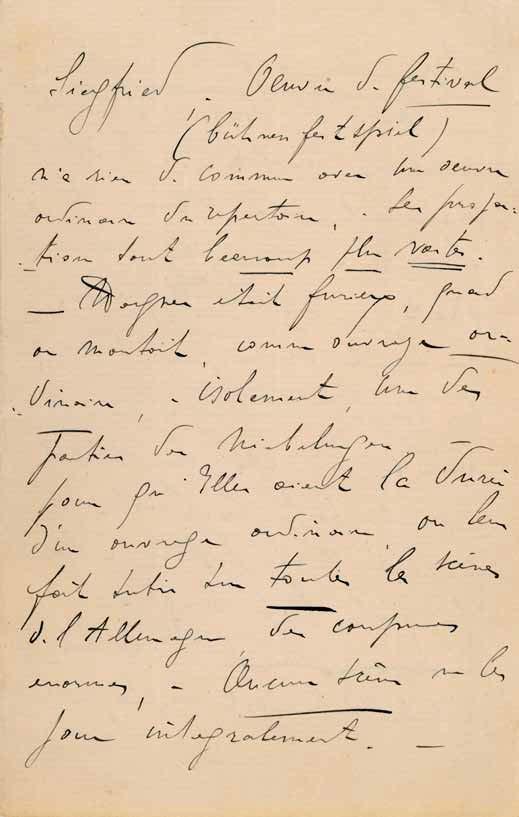 Siegfried, - Oeuvre de festival
(bühnenfestspiel)
n'a rien de commun avec une oeuvre
ordinaire du repertoire, - Les propor-
-tions sont beaucoup plus vastes.
_ Wagner était furieux, quand
on montait, comme ouvrage or-
-dinaire, - isolement, une des
parties des Niebelungen _
pour qu'Elles aient la durée
d'un ouvrage ordinaire, on leur
fait subir sur toutes les scènes
de l'Allemagne, des coupures
enormes, - Aucune scène ne les
joue intégralement. _